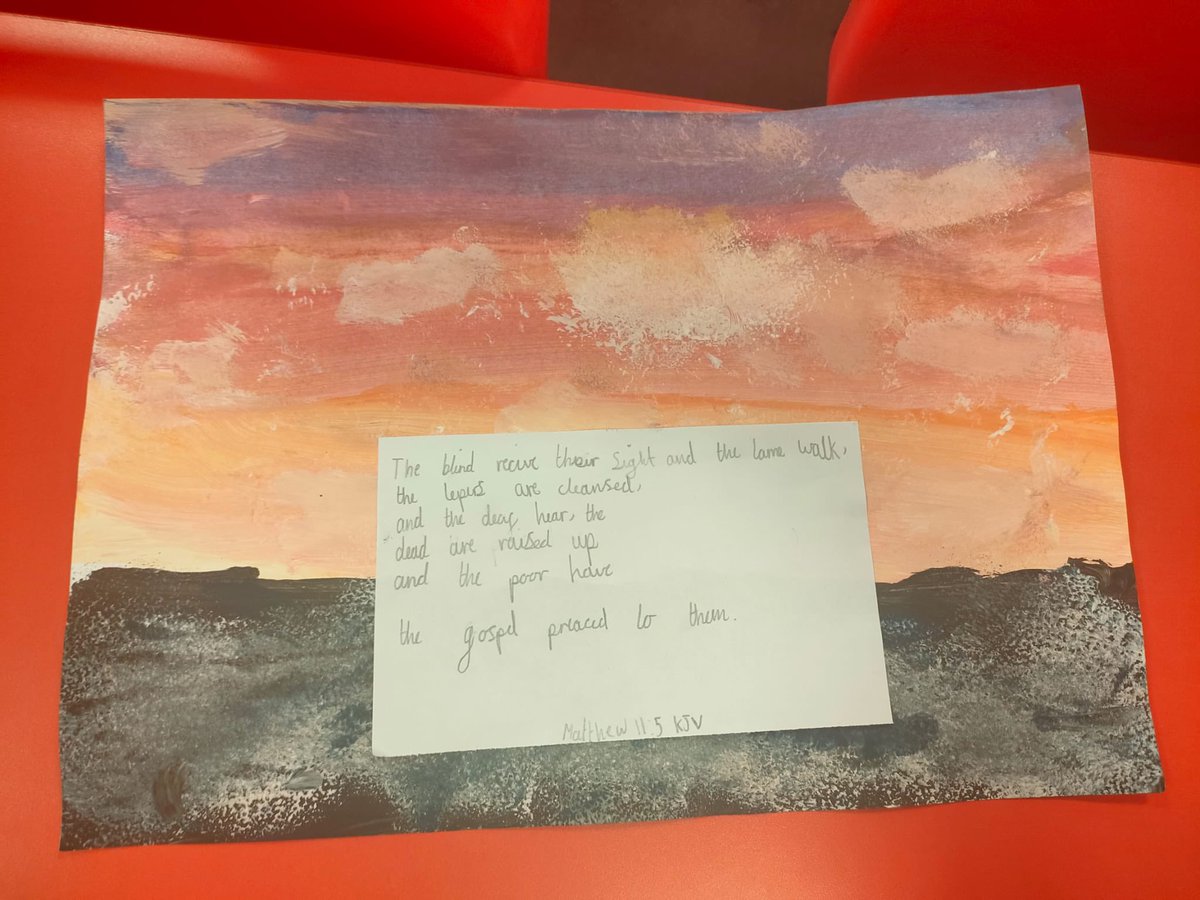 The blind recive their sight and the lame walk,
the lepers are cleansed,
and the deaf hear, the
dead are raised up
and the poor have
the gospel preaced to them.
Matthew 11:5 KJV